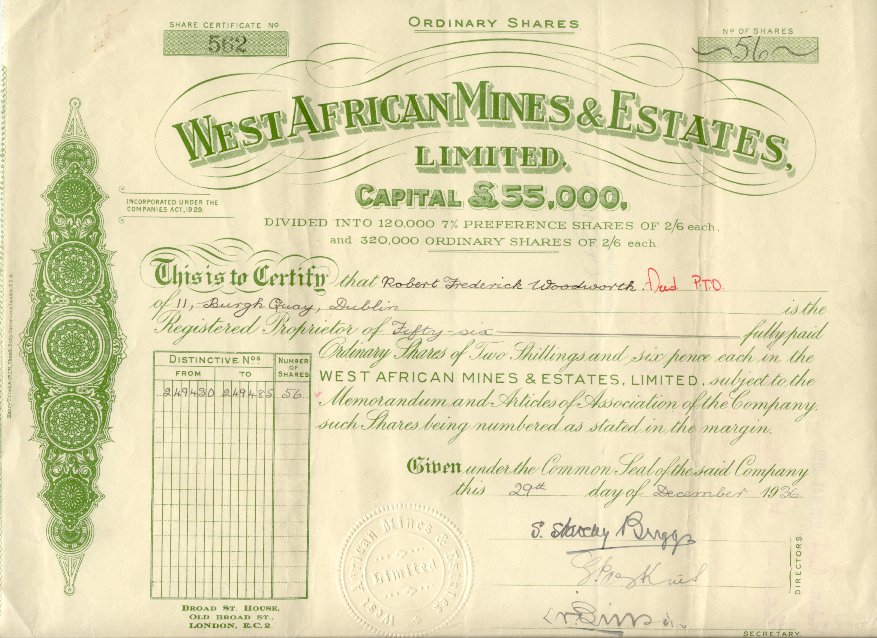 ORDINARY SHARES
SHARE CERTIFICATE No
562
No OF SHARES
56
WEST AFRICAN MINES & ESTATES,
LIMITED.
CAPITAL £55,000,
INCORPORATED UNDER THE
COMPANIES ACT, 1929.
DIVIDED INTO 120,000 7% PREFERENCE SHARES OF 2/6 each,
and 320,000 ORDINARY SHARES OF 2/6 each.
This is to Certify that Robert Frederick Woodworth. Decd P.T.O.
of 11, Burgh Quay, Dublin is the
Registered Proprietor of Fifty-six fully paid
Ordinary Shares of Two Shillings and six pence each in the
WEST AFRICAN MINES & ESTATES, LIMITED, subject to the
Memorandum and Articles of Association of the Company,
such Shares being numbered as stated in the margin.
DISTINCTIVE Nos. NUMBER OF SHARES
FROM TO
249430 249485 56
Given under the Common Seal of the said Company
this 29th day of December 1936
West African Mines & Estates
Limited
DIRECTORS
SECRETARY.
BROAD ST. HOUSE,
OLD BROAD ST.,
LONDON, E.C.2